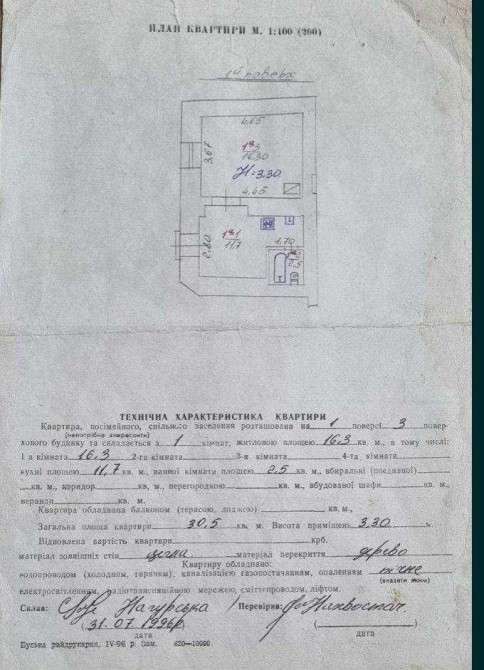 ПЛАН КВАРТИРИ М. 1:100 (200)
1й поверх
4,65
3,67
1-3
16,30
H=3.30
4.65
1-1
11,7
2,80
1,70
2,5
ТЕХНІЧНА ХАРАКТЕРИСТИКА КВАРТИРИ
Квартира, посімейного, спільного заселення розташована на 1 поверсі 3 повер-
(непотрібне закреслити)
хового будинку та складається з 1 кімнат, житловою площею 16,3 кв. м., а тому числі:
1-а кімната 16,3 2-га кімната 3-я кімната 4-та кімната
кухні площею 11,7 кв. м., ванної кімнати площею 2,5 кв. м., вбиральні (поєднаної)
кв. м., коридор кв. м., перегородкою кв. м., вбудованої шафи кв. м.,
веранди кв. м.
Квартира обладнана балконом (терасою, лоджею) кв, м.,
Загальна площа квартири 30,5 кв, м. Висота приміщень 3,30 м.
Відновлена вартість квартири крб.
матеріал зовнішніх стін цегла матеріал перекриття дерево
Квартиру обладнано:
водопроводом (холодним, гарячим), каналізацією газопостачанням, опаленням пічне
(вказати який)
електросвітленням, радіотрансляційною мережею, сміттєпроводом, ліфтом.
Склав: Нагурська Перевірив:
31.07.1996р.
дата дата
Буська райдрукарня, IV-96 р. Зам. 620—10000